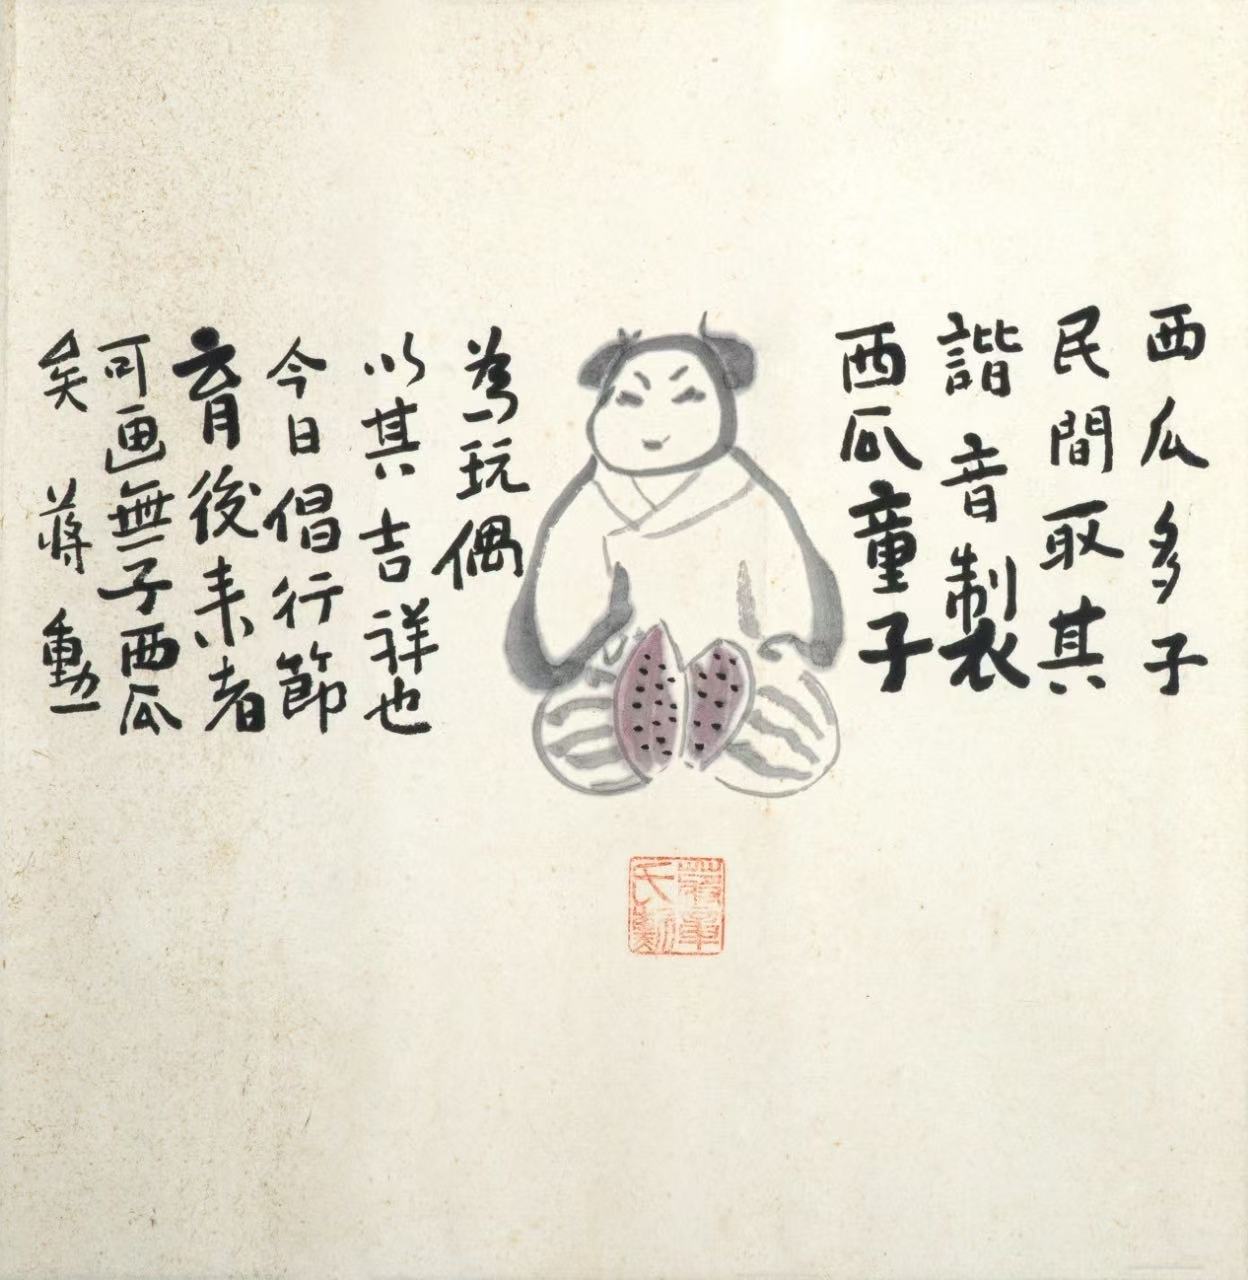 西瓜多子
民間取其
諧音製
西瓜童子
為玩偶
以其吉祥也
今日倡行節
育後来者
可画無子西瓜
矣 蒋勳